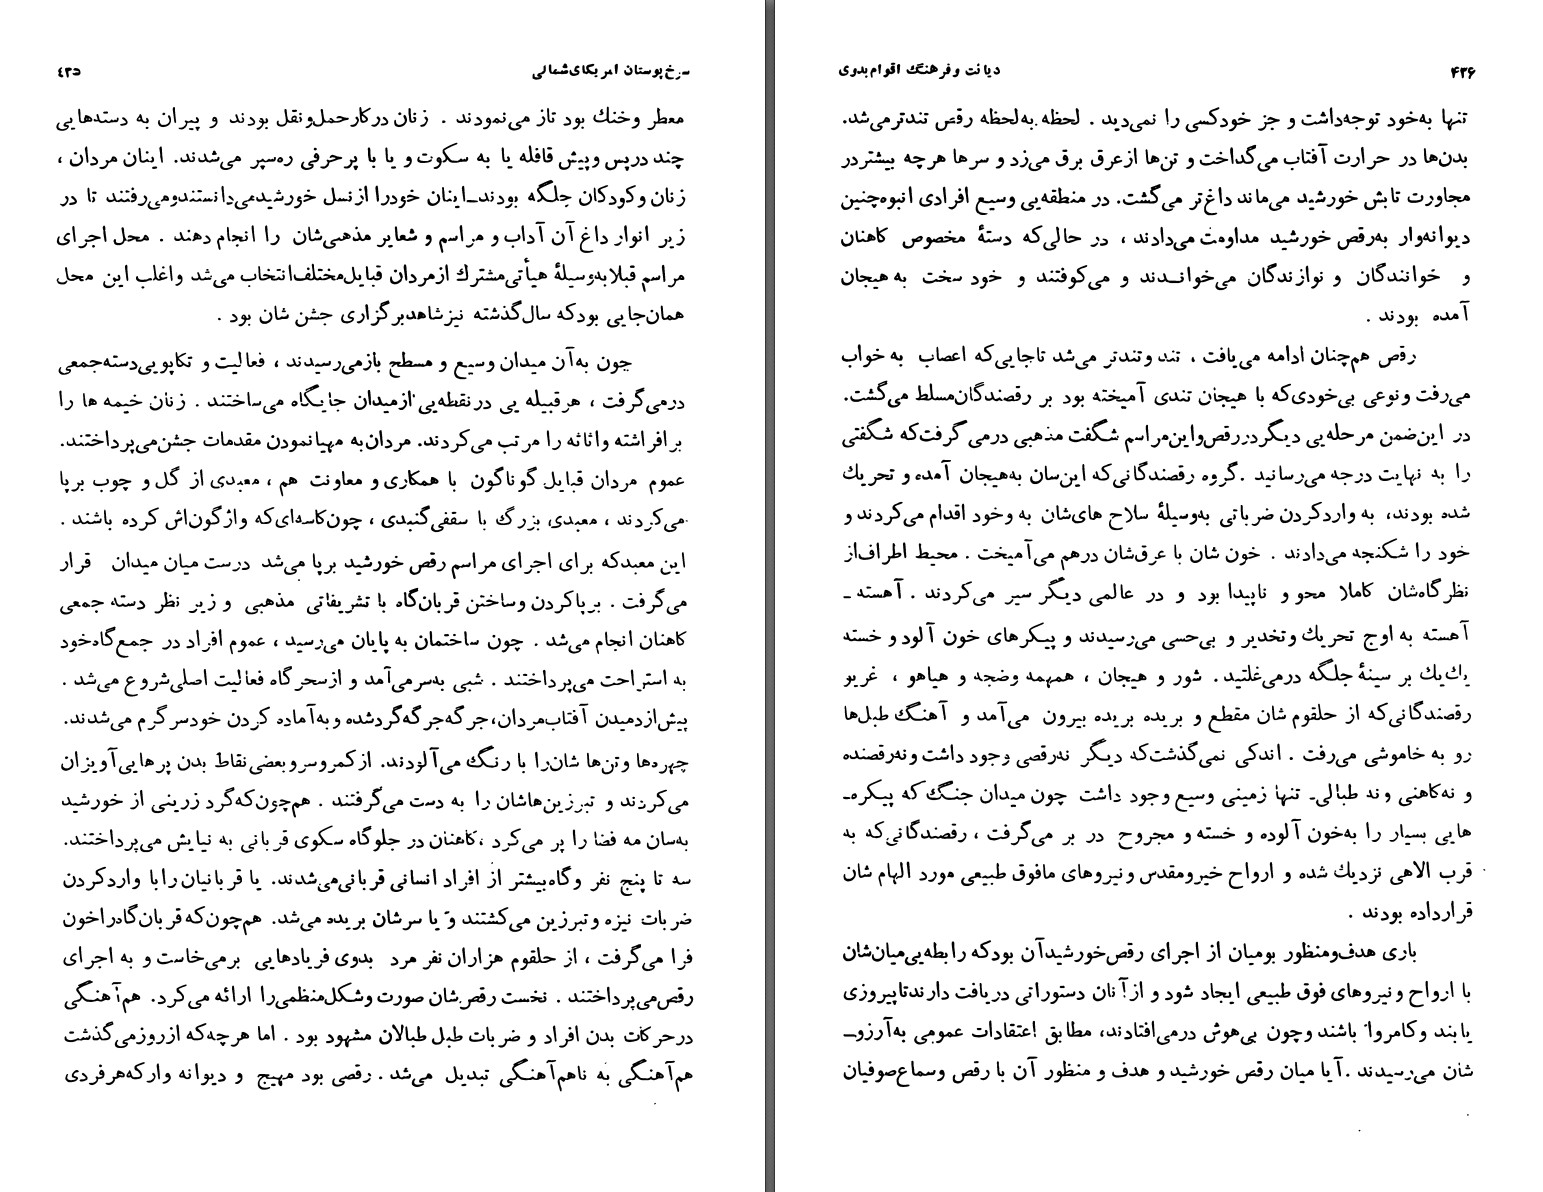 سرخ‌پوستان امریکای‌شمالی ٤٣٥
معطر و خنك بود تاز می‌نمودند . زنان درکار حمل و نقل بودند و پیران به دسته‌هایی
چند درپس و پیش قافله یا به سکوت و یا با پرحرفی ره‌سپر می‌شدند. اینان مردان ،
زنان و کودکان جلگه بودند ــ اینان خودرا از نسل خورشید می‌دانستند و می‌رفتند تا در
زیر انوار داغ آن آداب و مراسم و شعایر مذهبی‌شان را انجام دهند . محل اجرای
مراسم قبلا به‌وسیلهٔ هیأتی مشترك از مردان قبایل مختلف انتخاب می‌شد و اغلب این محل
همان‌جایی بود که سال گذشته نیز شاهد برگزاری جشن شان بود .
چون به‌آن میدان وسیع و مسطح باز می‌رسیدند ، فعالیت و تکاپویی دسته‌جمعی
درمی‌گرفت ، هر قبیله یی در نقطه‌یی از میدان جایگاه می‌ساختند . زنان خیمه ها را
بر افراشته و اثاثه را مرتب می‌کردند. مردان به مهیا نمودن مقدمات جشن می‌پرداختند.
عموم مردان قبایل گوناگون با همکاری و معاونت هم ، معبدی از گل و چوب برپا
می‌کردند ، معبدی بزرگ با سقفی گنبدی ، چون کاسه‌ای‌که واژگون‌اش کرده باشند .
این معبد که برای اجرای مراسم رقص خورشید برپا می‌شد درست میان میدان قرار
می‌گرفت . برپا کردن و ساختن قربان‌گاه با تشریفاتی مذهبی و زیر نظر دسته جمعی
کاهنان انجام می‌شد . چون ساختمان به پایان می‌رسید ، عموم افراد در جمع‌گاه خود
به استراحت می‌پرداختند . شبی به‌سر می‌آمد و از سحرگاه فعالیت اصلی شروع می‌شد .
پیش از دمیدن آفتاب مردان، جرگه‌جرگه گرد شده و به آماده کردن خود سرگرم می‌شدند.
چهره‌ها و تن‌ها شان‌را با رنگ می‌آلودند. از کمر و سر و بعضی نقاط بدن پرهایی آویزان
می‌کردند و تبرزین‌هاشان را به دست می‌گرفتند . هم‌چون‌که گرد زرینی از خورشید
به‌سان مه فضا را پر می‌کرد ، کاهنان در جلوگاه سکوی قربانی به نیایش می‌پرداختند.
سه تا پنج نفر و گاه بیشتر از افراد انسانی قربانی می‌شدند. یا قربانیان را با وارد کردن
ضربات نیزه و تبرزین می‌کشتند و یا سرشان بریده می‌شد. هم‌چون‌که قربان‌گاه را خون
فرا می‌گرفت ، از حلقوم هزاران نفر مرد بدوی فریادهایی برمی‌خاست و به اجرای
رقص می‌پرداختند . نخست رقص‌شان صورت و شکل منظمی را ارائه می‌کرد. هم‌آهنگی
درحرکات بدن افراد و ضربات طبل طبالان مشهود بود . اما هرچه‌که از روز می‌گذشت
هم‌آهنگی به ناهم‌آهنگی تبدیل می‌شد . رقصی بود مهیج و دیوانه وار که هر فردی
دیانت و فرهنگ اقوام بدوی ۴۳۶
تنها به‌خود توجه داشت و جز خود کسی را نمی‌دید . لحظه به لحظه رقص تندتر می‌شد.
بدن‌ها در حرارت آفتاب می‌گداخت و تن‌ها از عرق برق می‌زد و سرها هرچه بیشتر در
مجاورت تابش خورشید می‌ماند داغ‌تر می‌گشت. در منطقه‌یی وسیع افرادی انبوه چنین
دیوانه‌وار به‌رقص خورشید مداومت می‌دادند ، در حالی‌که دستهٔ مخصوص کاهنان
و خوانندگان و نوازندگان می‌خواندند و می‌کوفتند و خود سخت به هیجان
آمده بودند .
رقص هم‌چنان ادامه می‌یافت ، تند و تندتر می‌شد تاجایی‌که اعصاب به خواب
می‌رفت و نوعی بی‌خودی‌که با هیجان تندی آمیخته بود بر رقصندگان مسلط می‌گشت.
در این‌ضمن مرحله‌یی دیگر در رقص و این مراسم شگفت مذهبی درمی گرفت‌که شگفتی
را به نهایت درجه می‌رسانید . گروه رقصندگانی‌که این‌سان به‌هیجان آمده و تحریك
شده بودند، به وارد کردن ضرباتی به‌وسیلهٔ سلاح های‌شان به وخود اقدام می‌کردند و
خود را شکنجه می‌دادند . خون شان با عرق‌شان درهم می‌آمیخت . محیط اطراف از
نظرگاه‌شان کاملا محو و ناپیدا بود و در عالمی دیگر سیر می‌کردند . آهسته ـ
آهسته به اوج تحریك و تخدیر و بی‌حسی می‌رسیدند و پیکرهای خون آلود و خسته
یك‌یك بر سینهٔ جلگه درمی‌غلتید . شور و هیجان ، همهمه و ضجه و هیاهو ، غریو
رقصندگانی‌که از حلقوم شان مقطع و بریده بریده بیرون می‌آمد و آهنگ طبل‌ها
رو به خاموشی می‌رفت . اندکی نمی‌گذشت‌که دیگر نه‌رقصی وجود داشت و نه‌رقصنده
و نه‌کاهنی و نه طبالی ـ تنها زمینی وسیع وجود داشت چون میدان جنگ که پیکره‌ـ
هایی بسیار را به‌خون آلوده و خسته و مجروح در بر می‌گرفت ، رقصندگانی‌که به
قرب الاهی نزدیك شده و ارواح خیر و مقدس و نیروهای مافوق طبیعی مورد الهام شان
قرارداده بودند .
باری هدف و منظور بومیان از اجرای رقص خورشید آن بود که رابطه‌یی میان‌شان
با ارواح و نیروهای فوق طبیعی ایجاد شود و از آنان دستوراتی دریافت دارند تا پیروزی
یابند و کامروا باشند و چون بی‌هوش درمی‌افتادند، مطابق اعتقادات عمومی به‌آرزوــ
شان می‌رسیدند . آیا میان رقص خورشید و هدف و منظور آن با رقص و سماع صوفیان